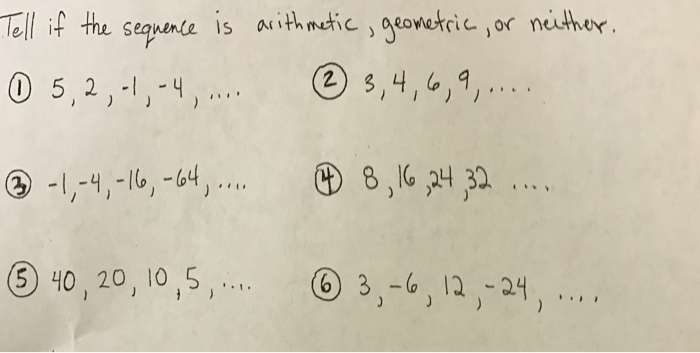 Tell if the sequence is arithmetic, geometric, or neither.
① 5, 2, -1, -4, ....
② 3, 4, 6, 9, ....
③ -1, -4, -16, -64, ....
④ 8, 16, 24, 32 ....
⑤ 40, 20, 10, 5, ....
⑥ 3, -6, 12, -24, ....